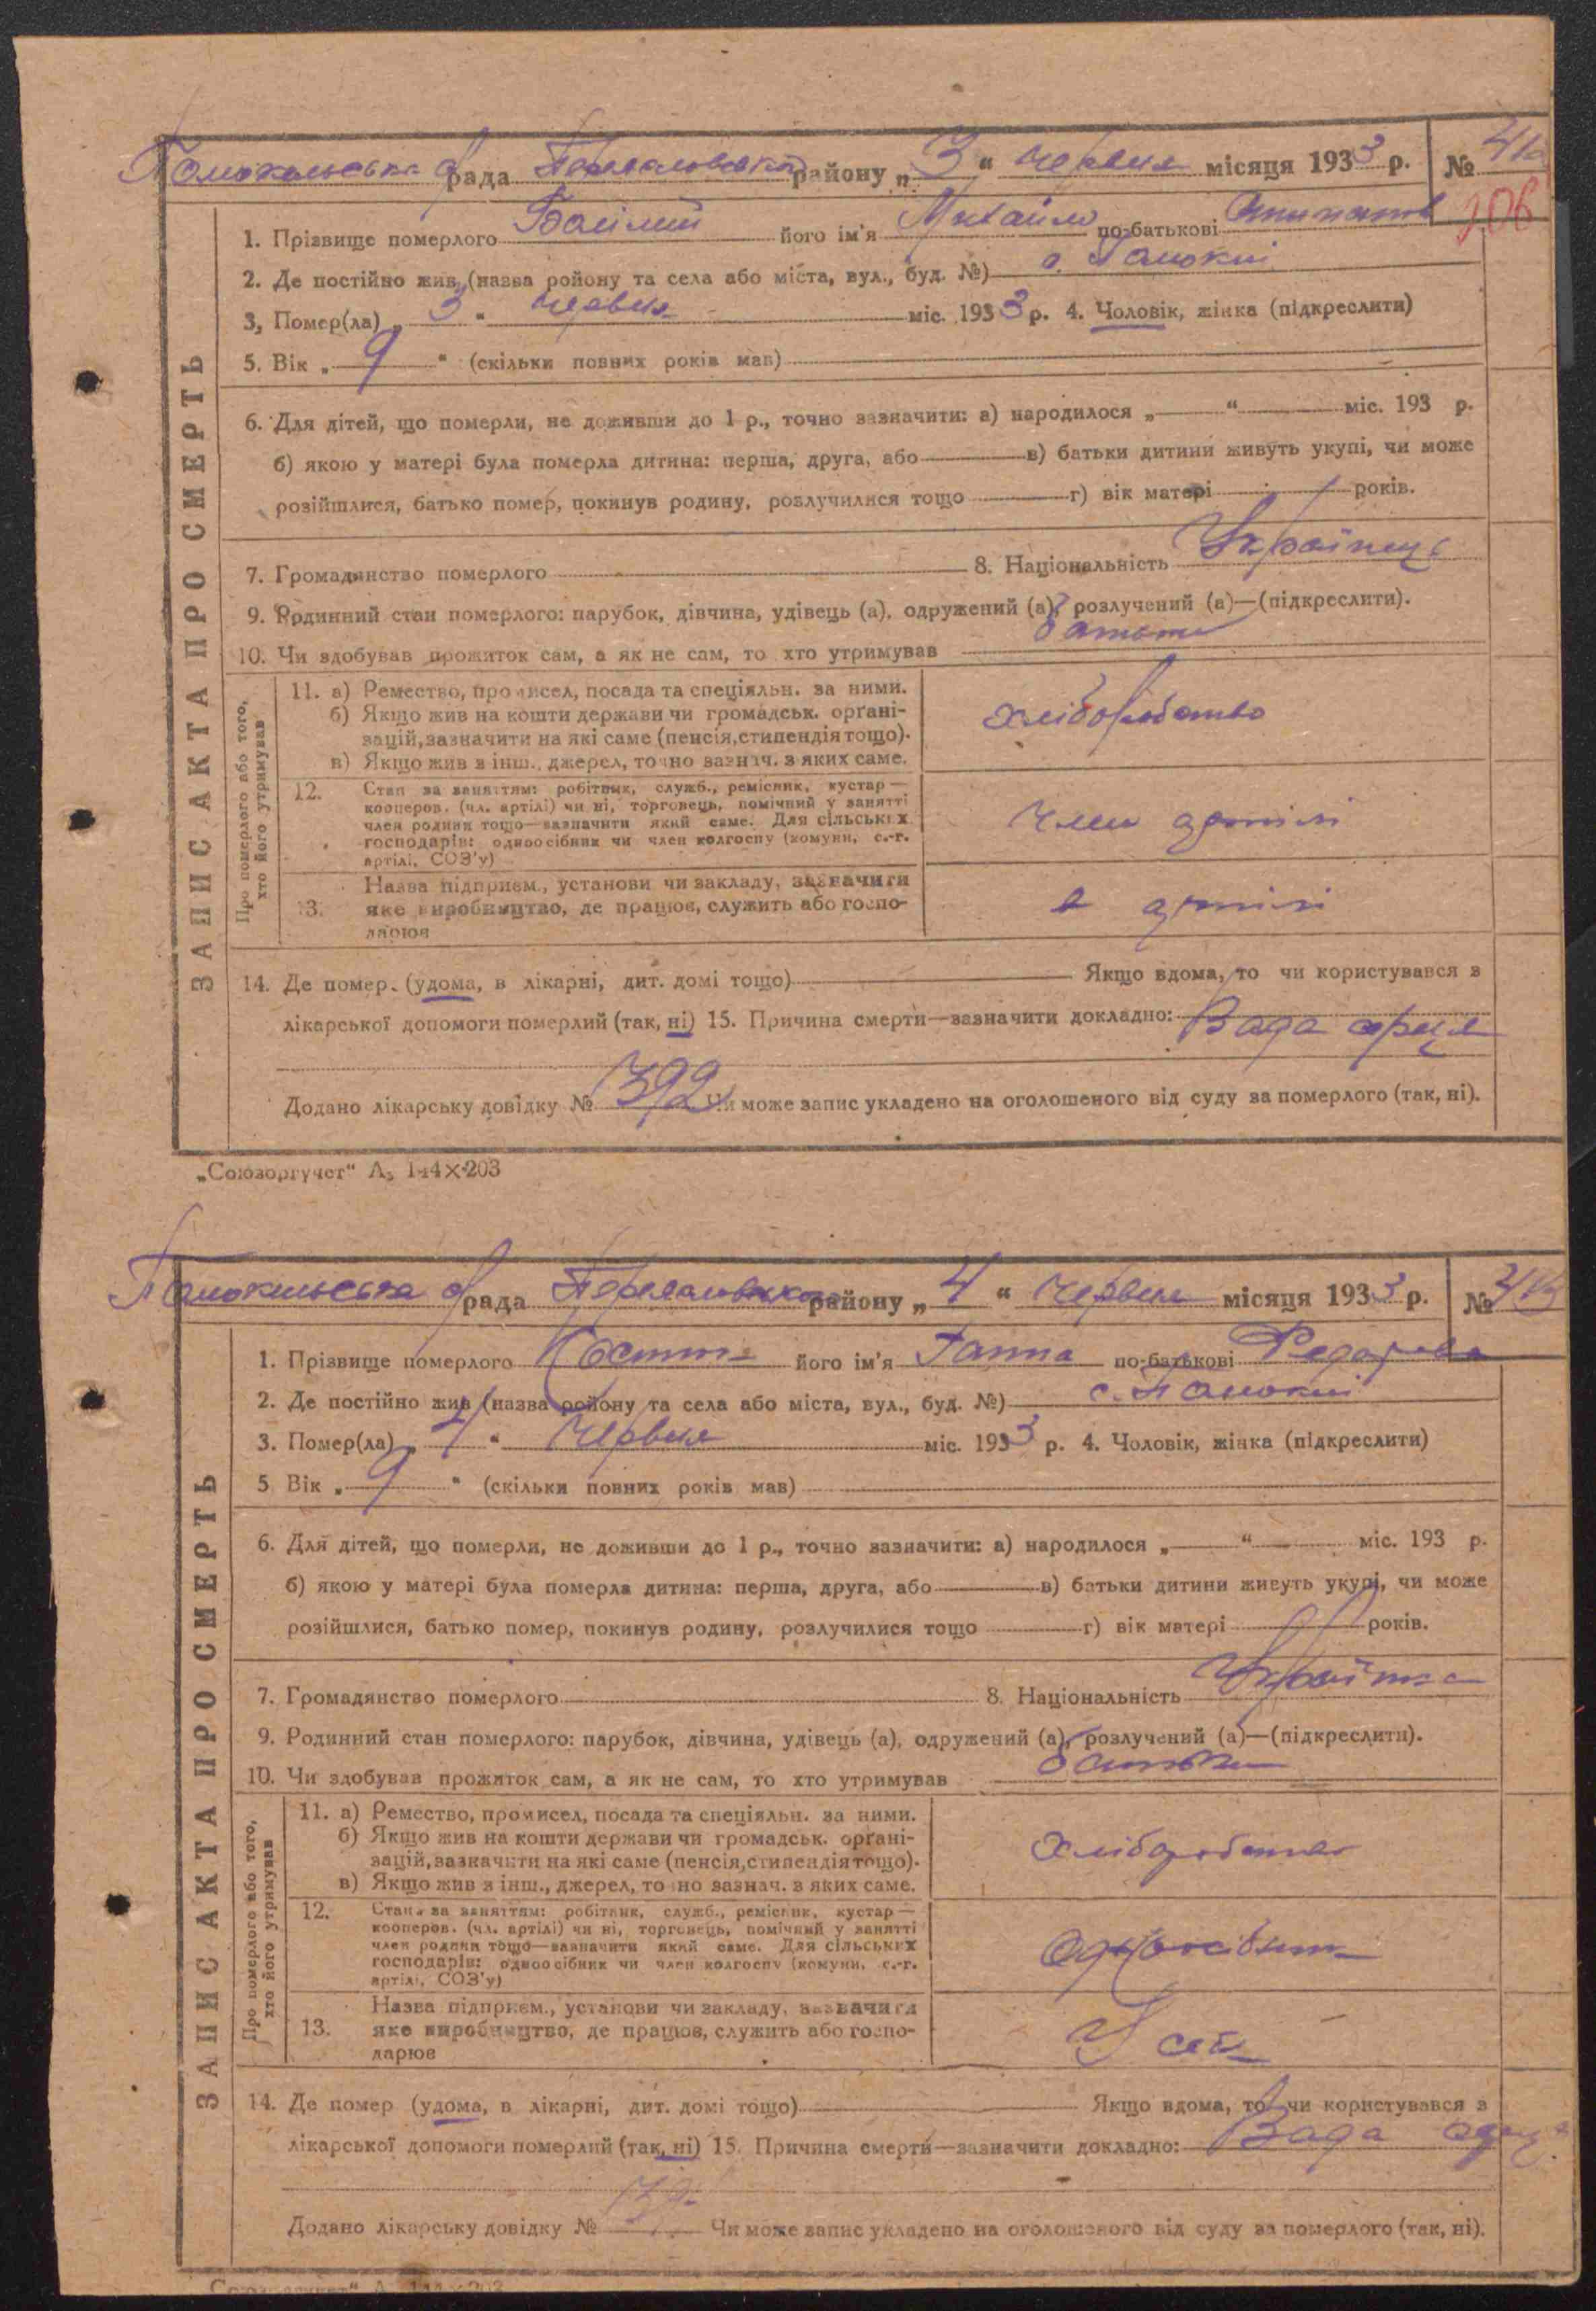 рада району „3“ червня місяця 1933 р. №
106
ЗАПИС АКТА ПРО СМЕРТЬ
1. Прізвище померлого його ім'я Михайло по-батькові
2. Де постійно жив (назва ройону та села або міста, вул., буд. №)
3, Помер(ла) „3“ червня міс. 1933 р. 4. Чоловік, жінка (підкреслити)
5. Вік „9“ (скільки повних років мав)
6. Для дітей, що померли, не доживши до 1 р., точно зазначити: а) народилося „ “ міс. 193 р.
б) якою у матері була померла дитина: перша, друга, або в) батьки дитини живуть укупі, чи може
розійшлися, батько помер, покинув родину, розлучилися тощо г) вік матері років.
7. Громадянство померлого 8. Національність Українець
9. Родинний стан померлого: парубок, дівчина, удівець (а), одружений (а), розлучений (а)—(підкреслити).
10. Чи здобував прожиток сам, а як не сам, то хто утримував батьки
Про померлого або того, хто його утримував
11. а) Ремество, промисел, посада та спеціяльн. за ними.
б) Якщо жив на кошти держави чи громадськ. орґані-
зацій, зазначити на які саме (пенсія, стипендія тощо).
в) Якщо жив з інш., джерел, точно зазнач. з яких саме.
хліборобство
12. Стан за заняттям: робітник, служб., ремісник, кустар—
кооперов. (чл. артілі) чи ні, торговець, помічний у занятті
член родини тощо—зазначити який саме. Для сільських
господарів: одноосібник чи член колгоспу (комуни, с.-г.
артілі, СОЗ'у)
член артілі
13. Назва підприєм., установи чи закладу, зазначити
яке виробництво, де працює, служить або госпо-
дарює
в артілі
14. Де помер. (удома, в лікарні, дит. домі тощо) Якщо вдома, то чи користувався з
лікарської допомоги померлий (так, ні) 15. Причина смерти—зазначити докладно: Вада серця
Додано лікарську довідку № 392 Чи може запис укладено на оголошеного від суду за померлого (так, ні).
„Союзоргучет“ А₅ 144×203
рада району „4“ червня місяця 1933 р. №
ЗАПИС АКТА ПРО СМЕРТЬ
1. Прізвище померлого його ім'я Ганна по-батькові
2. Де постійно жив (назва ройону та села або міста, вул., буд. №)
3. Помер(ла) „4“ червня міс. 1933 р. 4. Чоловік, жінка (підкреслити)
5 Вік „9“ (скільки повних років мав)
6. Для дітей, що померли, не доживши до 1 р., точно зазначити: а) народилося „ “ міс. 193 р.
б) якою у матері була померла дитина: перша, друга, або в) батьки дитини живуть укупі, чи може
розійшлися, батько помер, покинув родину, розлучилися тощо г) вік матері років.
7. Громадянство померлого 8. Національність Українка
9. Родинний стан померлого: парубок, дівчина, удівець (а), одружений (а), розлучений (а)—(підкреслити).
10. Чи здобував прожиток сам, а як не сам, то хто утримував батьки
Про померлого або того, хто його утримував
11. а) Ремество, промисел, посада та спеціяльн. за ними.
б) Якщо жив на кошти держави чи громадськ. орґані-
зацій, зазначити на які саме (пенсія, стипендія тощо).
в) Якщо жив з інш., джерел, точно зазнач. з яких саме.
хліборобство
12. Стан за заняттям: робітник, служб., ремісник, кустар—
кооперов. (чл. артілі) чи ні, торговець, помічний у занятті
член родини тощо—зазначити який саме. Для сільських
господарів: одноосібник чи член колгоспу (комуни, с.-г.
артілі, СОЗ'у)
одноосібник
13. Назва підприєм., установи чи закладу, зазначити
яке виробництво, де працює, служить або госпо-
дарює
У себе
14. Де помер (удома, в лікарні, дит. домі тощо) Якщо вдома, то чи користувався з
лікарської допомоги померлий (так, ні) 15. Причина смерти—зазначити докладно: Вада
Додано лікарську довідку № Чи може запис укладено на оголошеного від суду за померлого (так, ні).